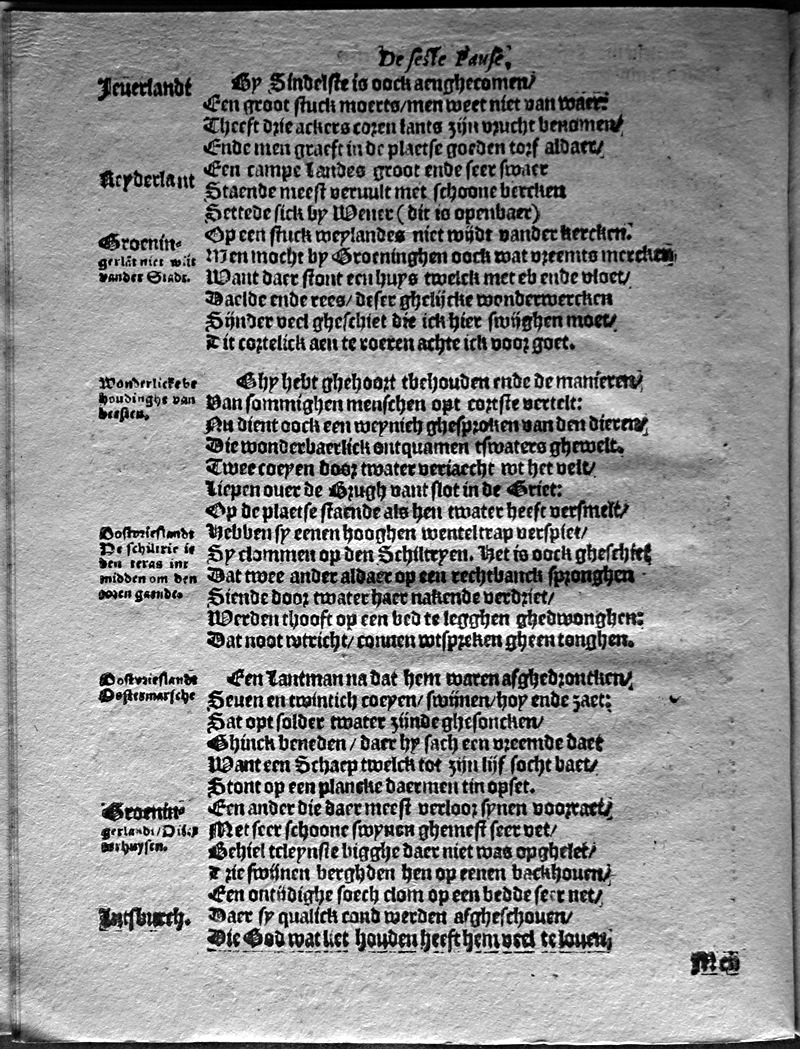 De seste Pause.
Jeuerlandt
By Sindelste is oock aenghecomen/
Een groot stuck moerts/men weet niet van waer:
Theeft drie ackers coren lants zijn vrucht benomen/
Ende men graeft in de plaetse goeden torf aldaer/
Reyderlant
Een campe Landes groot ende seer swaer
Staende meest veruult met schoone bercken
Settede sick by Wener (dit is openbaer)
Op een stuck weylandes niet wijdt vander kercken.
Groenin-
gerlãt niet wijt
vander Stadt.
Men mocht by Groeninghen oock wat vreemts mercken
Want daer stont een huys twelck met eb ende vloet/
Daelde ende rees/ deser ghelijcke wonderwercken
Sijnder veel gheschiet die ick hier swijghen moet/
Dit cortelick aen te roeren achte ick voor goet.
Wonderlicke be
houdinghe van
beesten.
Ghy hebt ghehoort tbehouden ende de manieren/
Van sommighen menschen opt cortste vertelt:
Nu dient oock een weynich ghesproken van den dieren/
Die wonderbaerlick ontquamen tswaters ghewelt.
Twee coeyen door twater veriaecht wt het velt/
Liepen ouer de Brugh vant slot in de Griet:
Op de plaetse staende als hen twater heeft versmelt/
Oostvrieslandt
De schiltrie is
den teras int
midden om den
toren gaende.
Hebben sy eenen hooghen wenteltrap verspiet/
Sy clommen op den Schiltryen. Het is oock gheschiet
Dat twee ander aldaer op een rechtbanck spronghen
Siende door twater haer nakende verdriet/
Werden thooft op een bed te legghen ghedwonghen:
Dat noot wtricht/ connen wtspreken gheen tonghen.
Oostvrieslandt
Oostermarsche
Een Lantman na dat hem waren afghedroncken/
Seuen en twintich coeyen/ swijnen/ hoy ende zaet:
Sat opt solder twater zijnde ghesoncken/
Ghinck beneden/ daer hy sach een vreemde daet
Want een Schaep twelck tot zijn lijf socht baet/
Stont op een plancke daermen tin opset.
Groenin-
gerlandt/
Een ander die daer meest verloor synen voorraet/
Met seer schoone swynen ghemest seer vet/
Behiel tcleynste bigghe daer niet was opghelet/
Drie swijnen berghden hen op eenen backhouen/
Een ontijdighe soech clom op een bedde seer net/
Daer sy qualick cond werden afgheschouen/
Die God wat liet houden heeft hem veel te louen/
Men